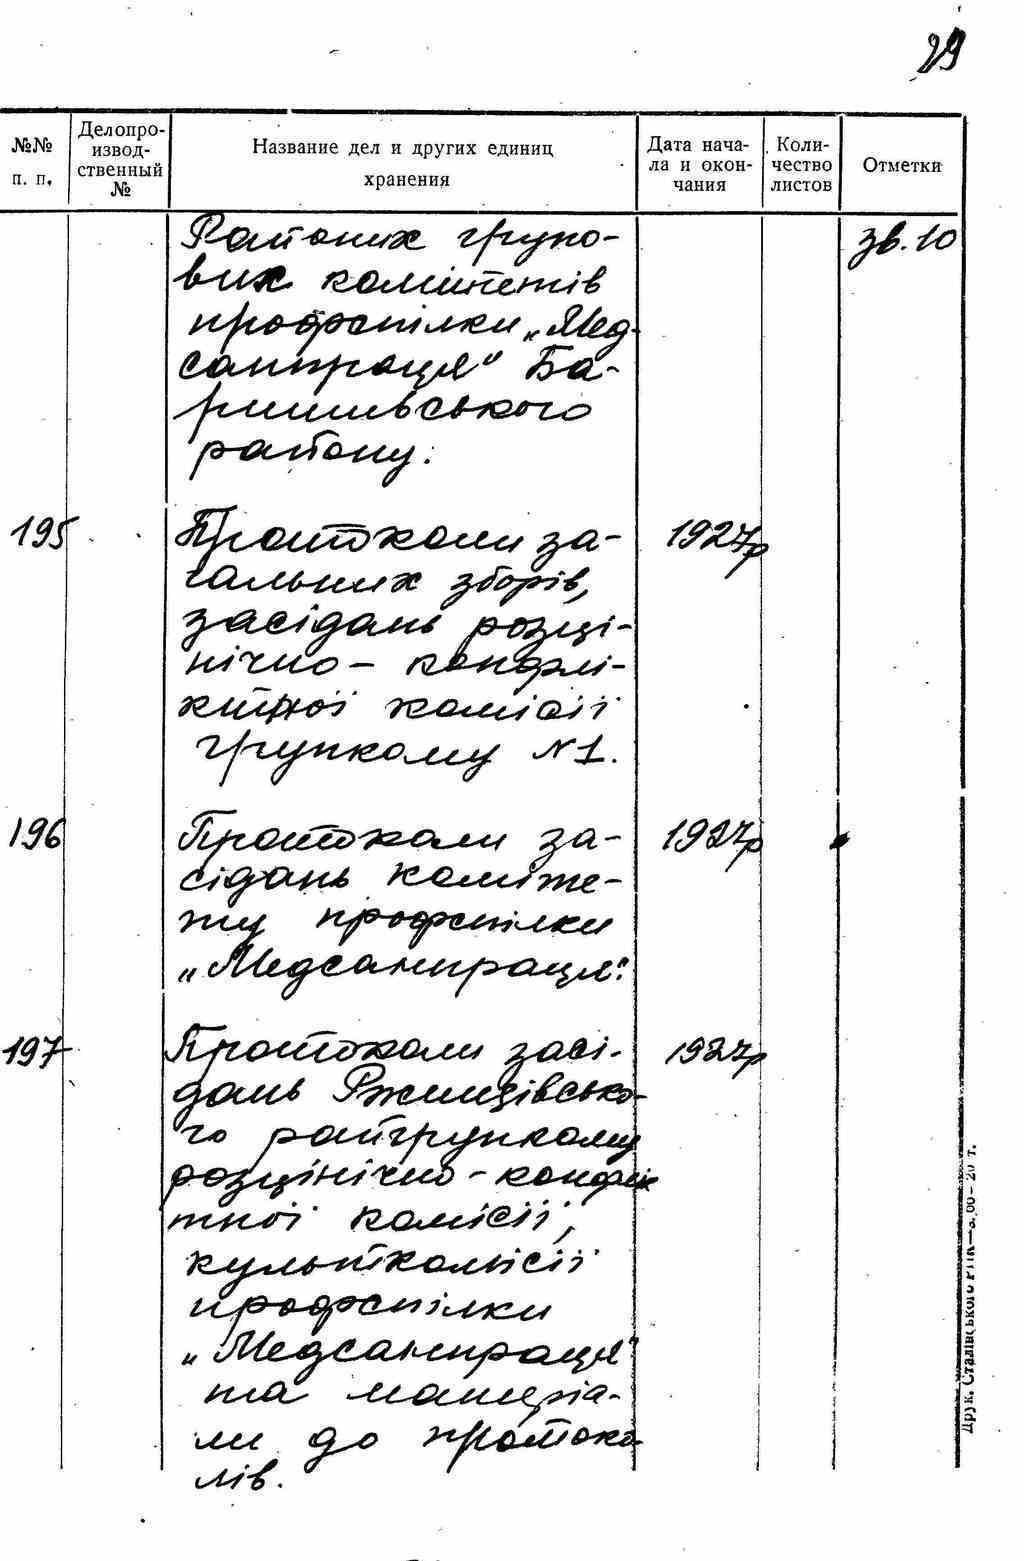 29
№№ п. п.
Делопро-
извод-
ственный
№
Название дел и других единиц
хранения
Дата нача-
ла и окон-
чания
Коли-
чество
листов
Отметки
Районих групо-
зв. 10
вих комітетів
профспілки „Мед-
санпраця" Ба-
ришівського
району.
195 Протоколи за-
1927р
гальних зборів,
засідань розці-
нічно- конфлі-
ктної комісії
групкому №1.
196 Протоколи за-
1927р
сідань коміте-
ту профспілки
„Медсанпраця".
197 Протоколи засі-
1927р
дань Ржищівсько-
го райгрупкому
розцінічно-конфлік
тної комісії,
культкомісії
профспілки
„Медсанпраця"
та матеріа-
ли до протоко-
лів.
Друк. Сталівського